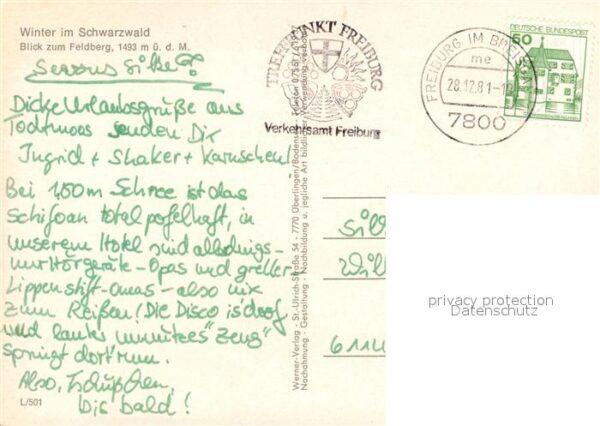 Winter im Schwarzwald
Blick zum Feldberg, 1493 m ü. d. M.
Servus
Dicke Urlaubsgrüße aus
Todtmoos senden Dir
Ingrid + Shaker + Karuschen!
Bei 1,50m Schnee ist das
Schifoan total pofelhaft, in
unserem Hotel sind allerdings
nur Hörgeräte-Opas und greller-
Lippenstift-Omas - also nix
zum Reißen! Die Disco ist doof
und lauter unnützes "Zeug"
springt dort rum.
Also, Tschüßchen,
bis bald!
L/501
TREFFPUNKT FREIBURG
Verkehrsamt Freiburg
Werner-Verlag · St.-Ulrich-Straße 54 · 7770 Überlingen/Bodensee
Nachahmung · Gestaltung · Nachbildung u. jegliche Art bildlicher Verwendung verboten
FREIBURG IM BREISGAU
me
28.12.81-1
7800
60
DEUTSCHE BUNDESPOST
611
privacy protection
Datenschutz